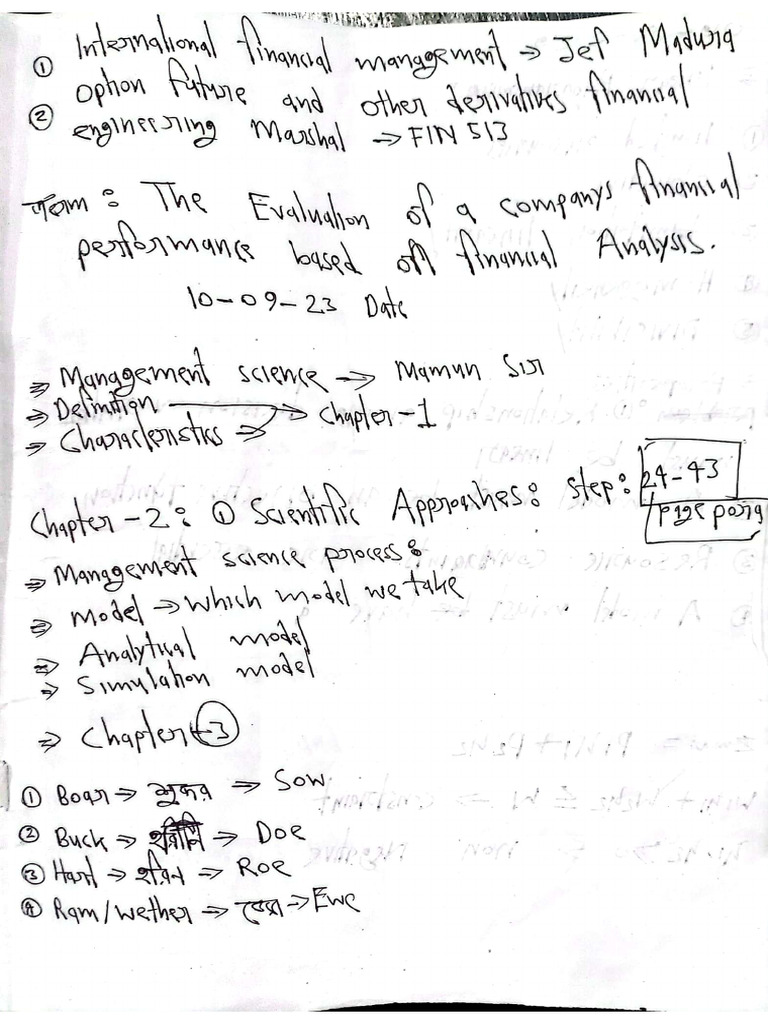 ① International financial management → Jef Madura
option future and other derivatives financial
② engineering Marshal → FIN 513
Term: The Evaluation of a companys financial
performance based on financial Analysis.
10-09-23 Date
⇒ Management science → Mamun Sir
⇒ Definition → Chapter-1
⇒ Characteristics →
Chapter-2: ① Scientific Approaches: step: 24-43
⇒ Management science process:
⇒ Model → which model we take
⇒ Analytical model
⇒ Simulation model
⇒ Chapter-3
① Boar → শুকর → Sow
② Buck → → Doe
③ Hart → হরিন → Roe
④ Ram/wether → → Ewe